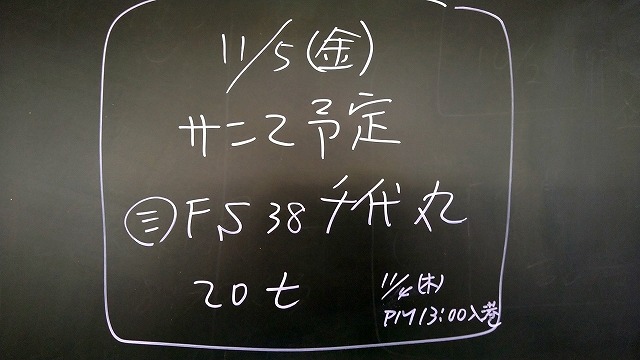 11/5(金)
サンマ予定
㊂FS38千代丸
20t
11/4(木)
PM13:00入港